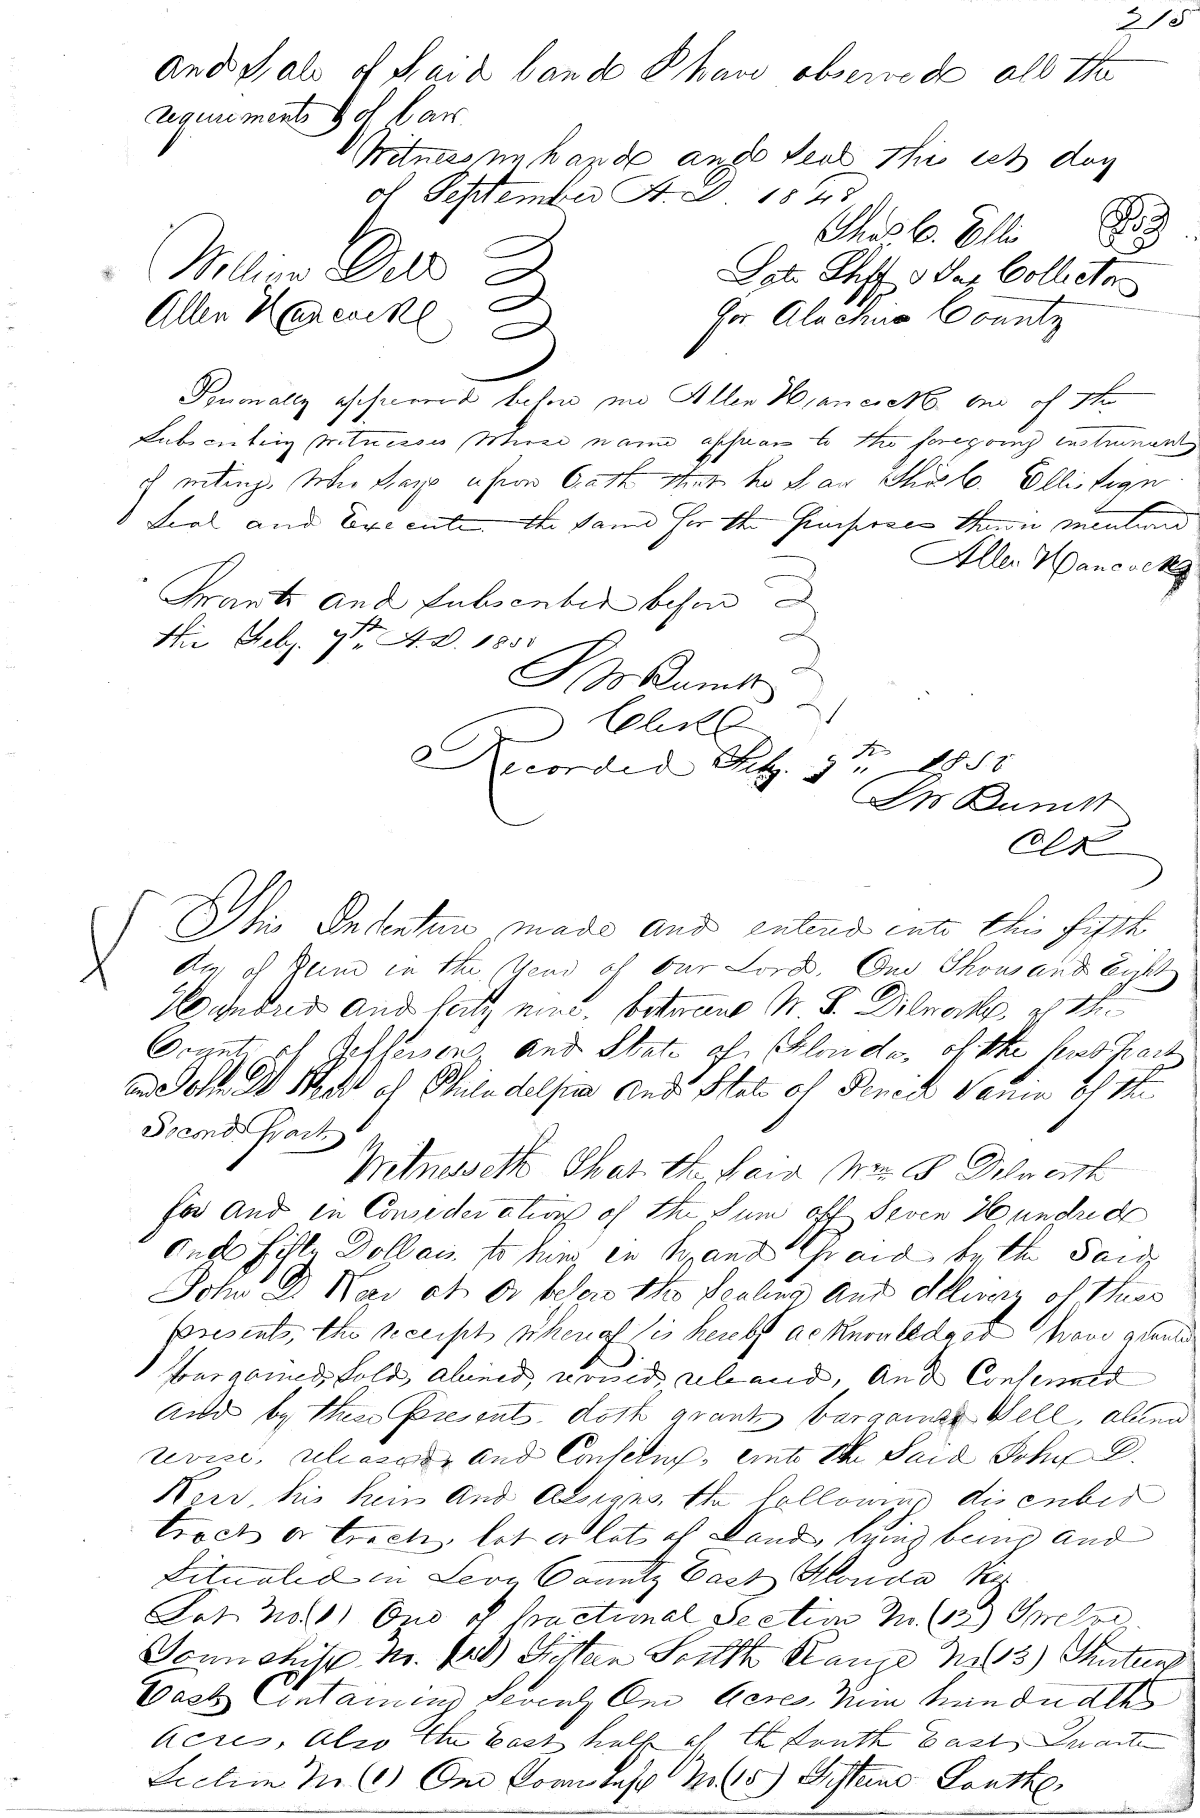 215
and Sale of Said land I have observed all the
requirements of law.
Witness my hand and Seal this 1st day
of September A.D. 1848
Thos. C. Ellis
William Dell
Late Shff & Tax Collector
Allen Hancock
for Alachua County
Personally appeared before me Allen Hancock one of the
Subscribing witnesses whose name appears to the foregoing instrument
of writing, who Says upon Oath that he Saw Thos. C. Ellis Sign
Seal and Execute the same for the purposes therein mentioned
Allen Hancock
Sworn to and Subscribed before
this Feby. 7th A.D. 185
Clerk
Recorded Feby. 7th 185
Clk
This Indenture made and entered into this fifth
day of June in the Year of our Lord, One Thousand Eight
Hundred and forty nine, between W. S. Dilworth, of the
County of Jefferson, and State of Florida, of the first part
and John D Kerr of Philadelphia and State of Pencil Vania of the
Second part
Witnesseth That the Said Wm S Dilworth
for and in Consideration of the Sum off Seven Hundred
and fifty Dollars to him in hand paid by the Said
John D Kerr at or before the Sealing and delivery of these
presents, the receipt whereof is hereby acknowledged have granted
bargained, Sold, aliened, revised, released, and Confermed
and by these presents doth grant, bargain, Sell, aliend
revise, release, and Confirm, unto the Said John D.
Kerr, his heirs and assigns, the following discribed
tract or tracts, lot or lots of Land, lying being and
Situated in Levy County East Florida Viz
Lot No. (1) One of fractional Section No. (12) Twelve
Township No. Fifteen South Range No (13) Thirteen
East Containing Seventy One Acres Nine hundredths
acres, also the East half of th South East Quarter
Section No. (1) One Township No. (15) Fifteene South,